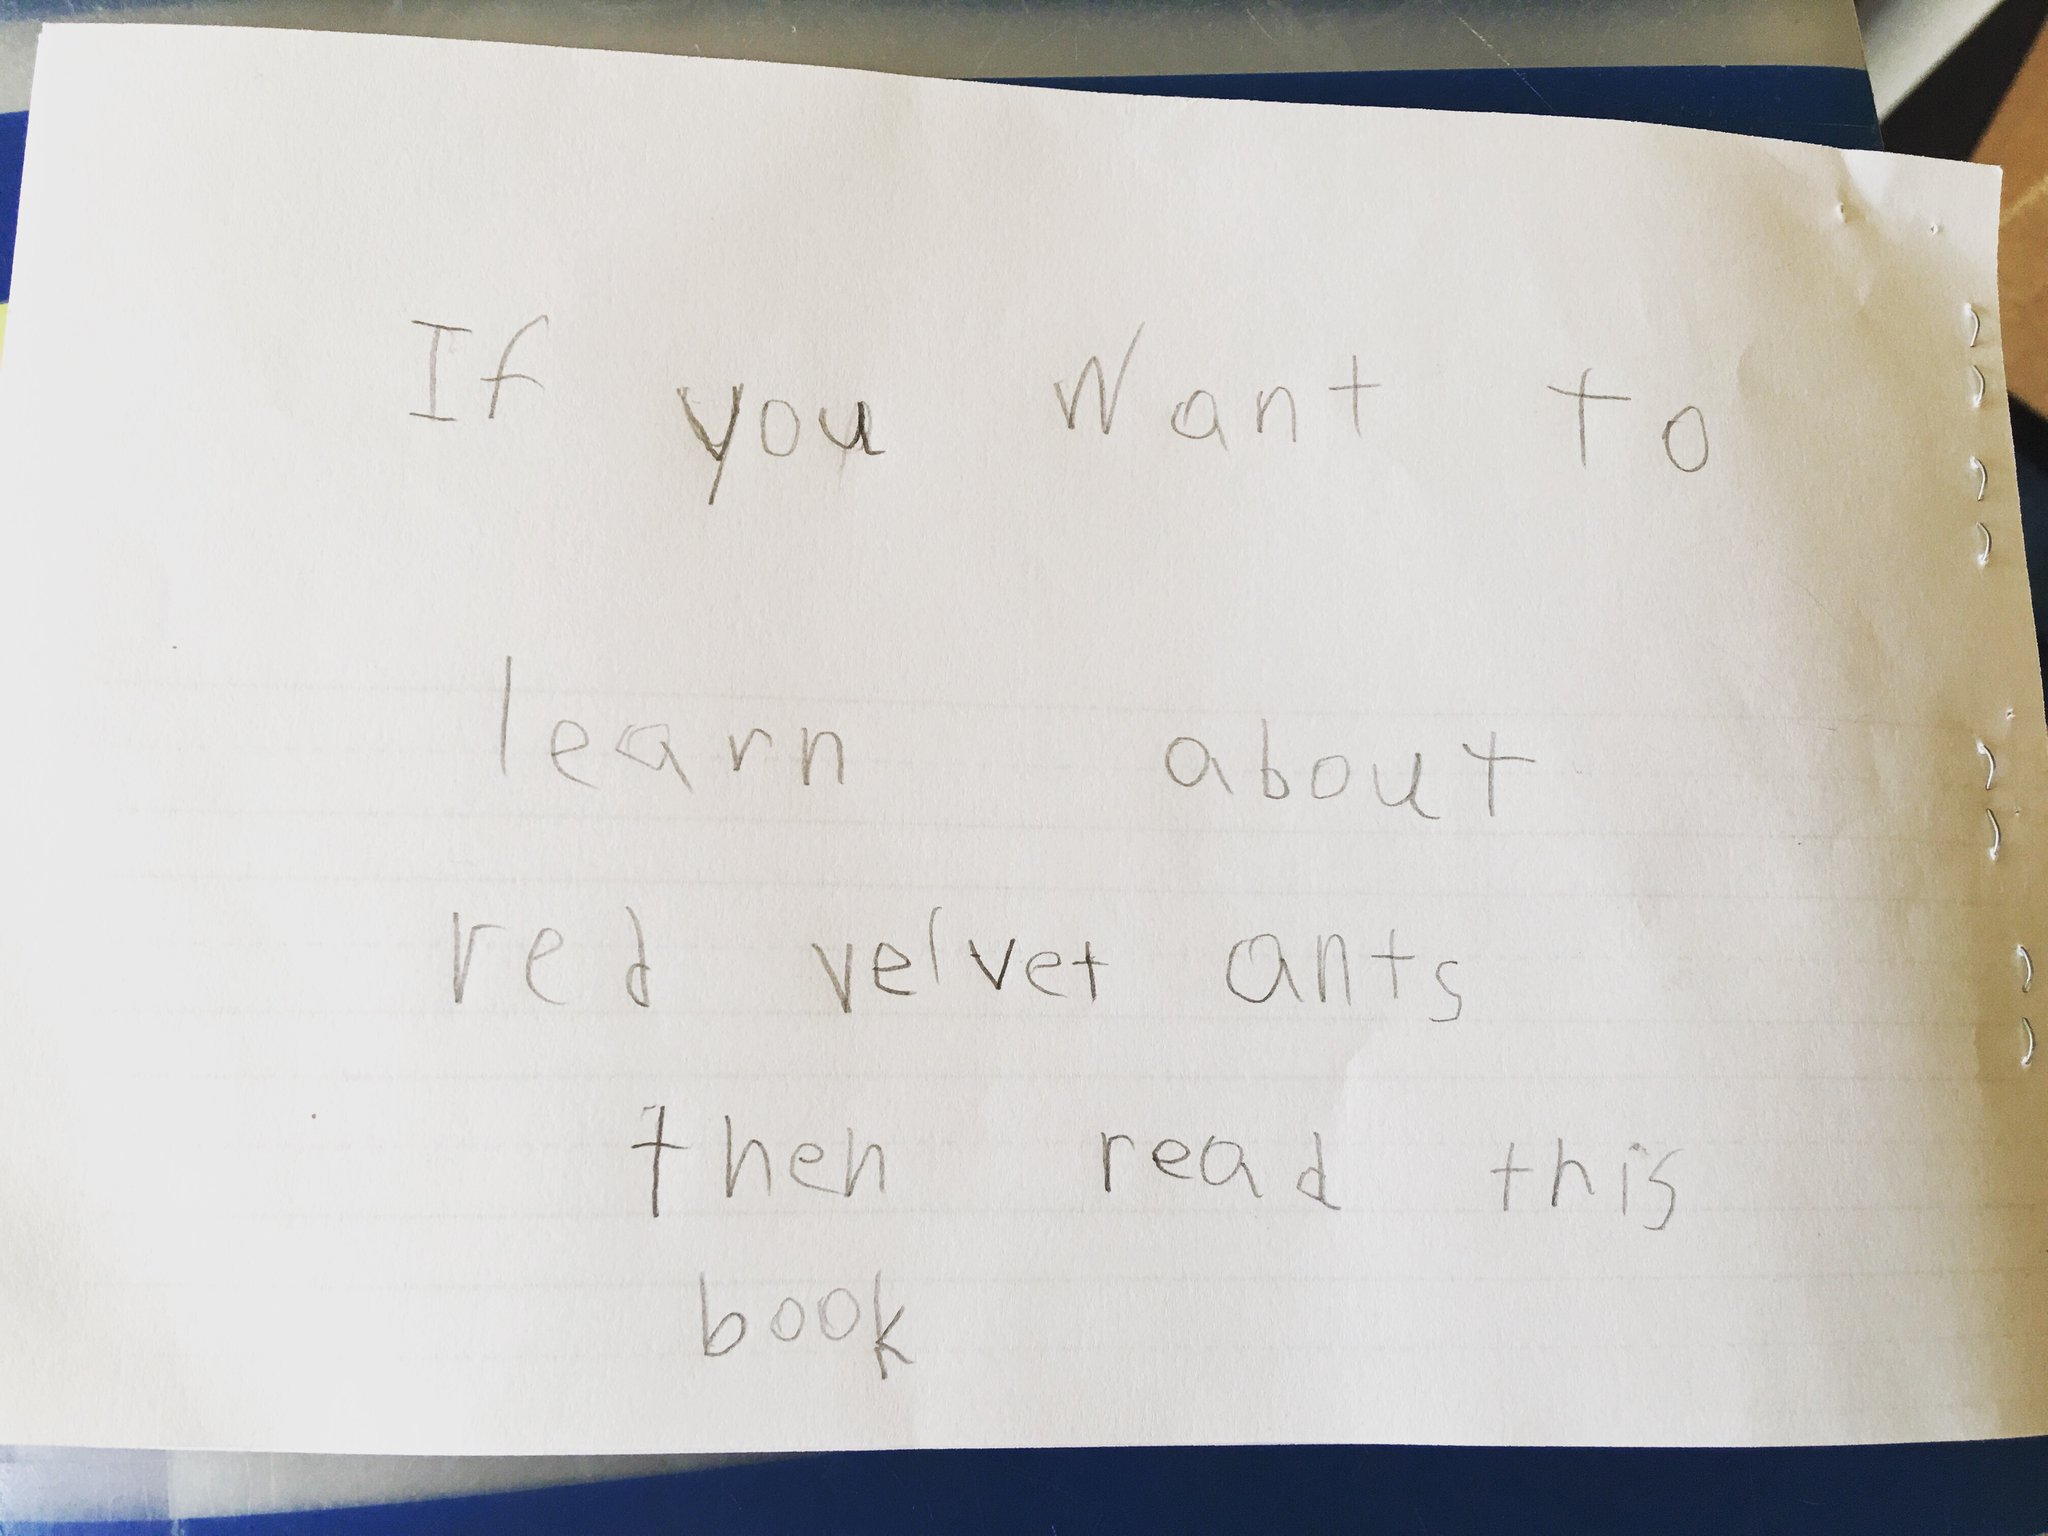 If you Want to
learn about
red velvet ants
then read this
book